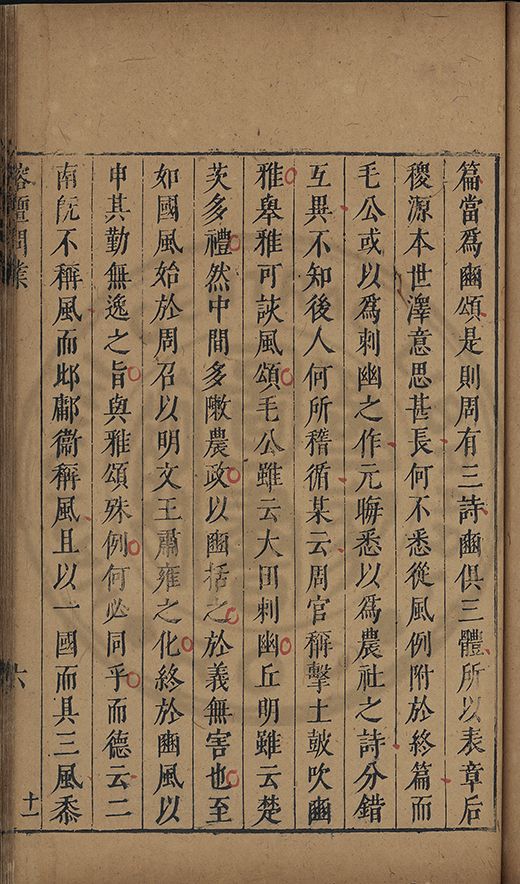 篇當爲豳頌是則周有三詩豳俱三體所以表章后
稷源本世澤意思甚長何不悉從風例附於終篇而
毛公或以爲刺幽之作元晦悉以爲農社之詩分錯
互異不知後人何所稽循某云周官稱擊土鼓吹豳
雅舉雅可該風頌毛公雖云大田刺幽丘明雖云楚
茨多禮然中間多陳農政以豳括之於義無害也至
如國風始於周召以明文王肅雍之化終於豳風以
申其勤無逸之旨與雅頌殊例何必同乎而德云二
南旣不稱風而邶鄘衞稱風且以一國而具三風黍
榕壇問業
六
十一